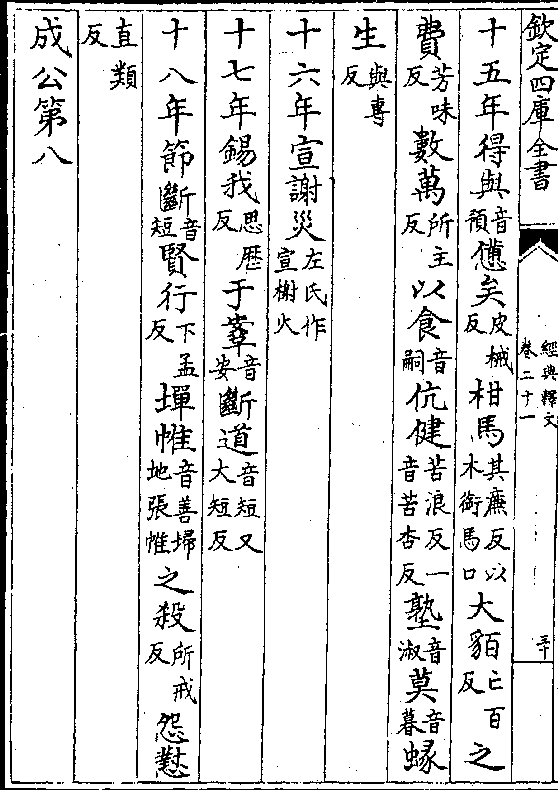 欽定四庫全書
經典釋文
卷二十一
三十
十五年得與音預憊矣皮械反柑馬其廉反以木銜馬口大貊亡百反之
費芳味反數萬所主反以食音嗣伉健苦浪反一音苦杏反塾音淑莫音暮蝝
生與專反
十六年宣謝災左氏作宣榭火
十七年錫我思歴反于𦍙音安斷道音短又大短反
十八年節斷音短賢行下孟反墠帷音善埽地張帷之殺所戒反怨懟
直類反
成公第八